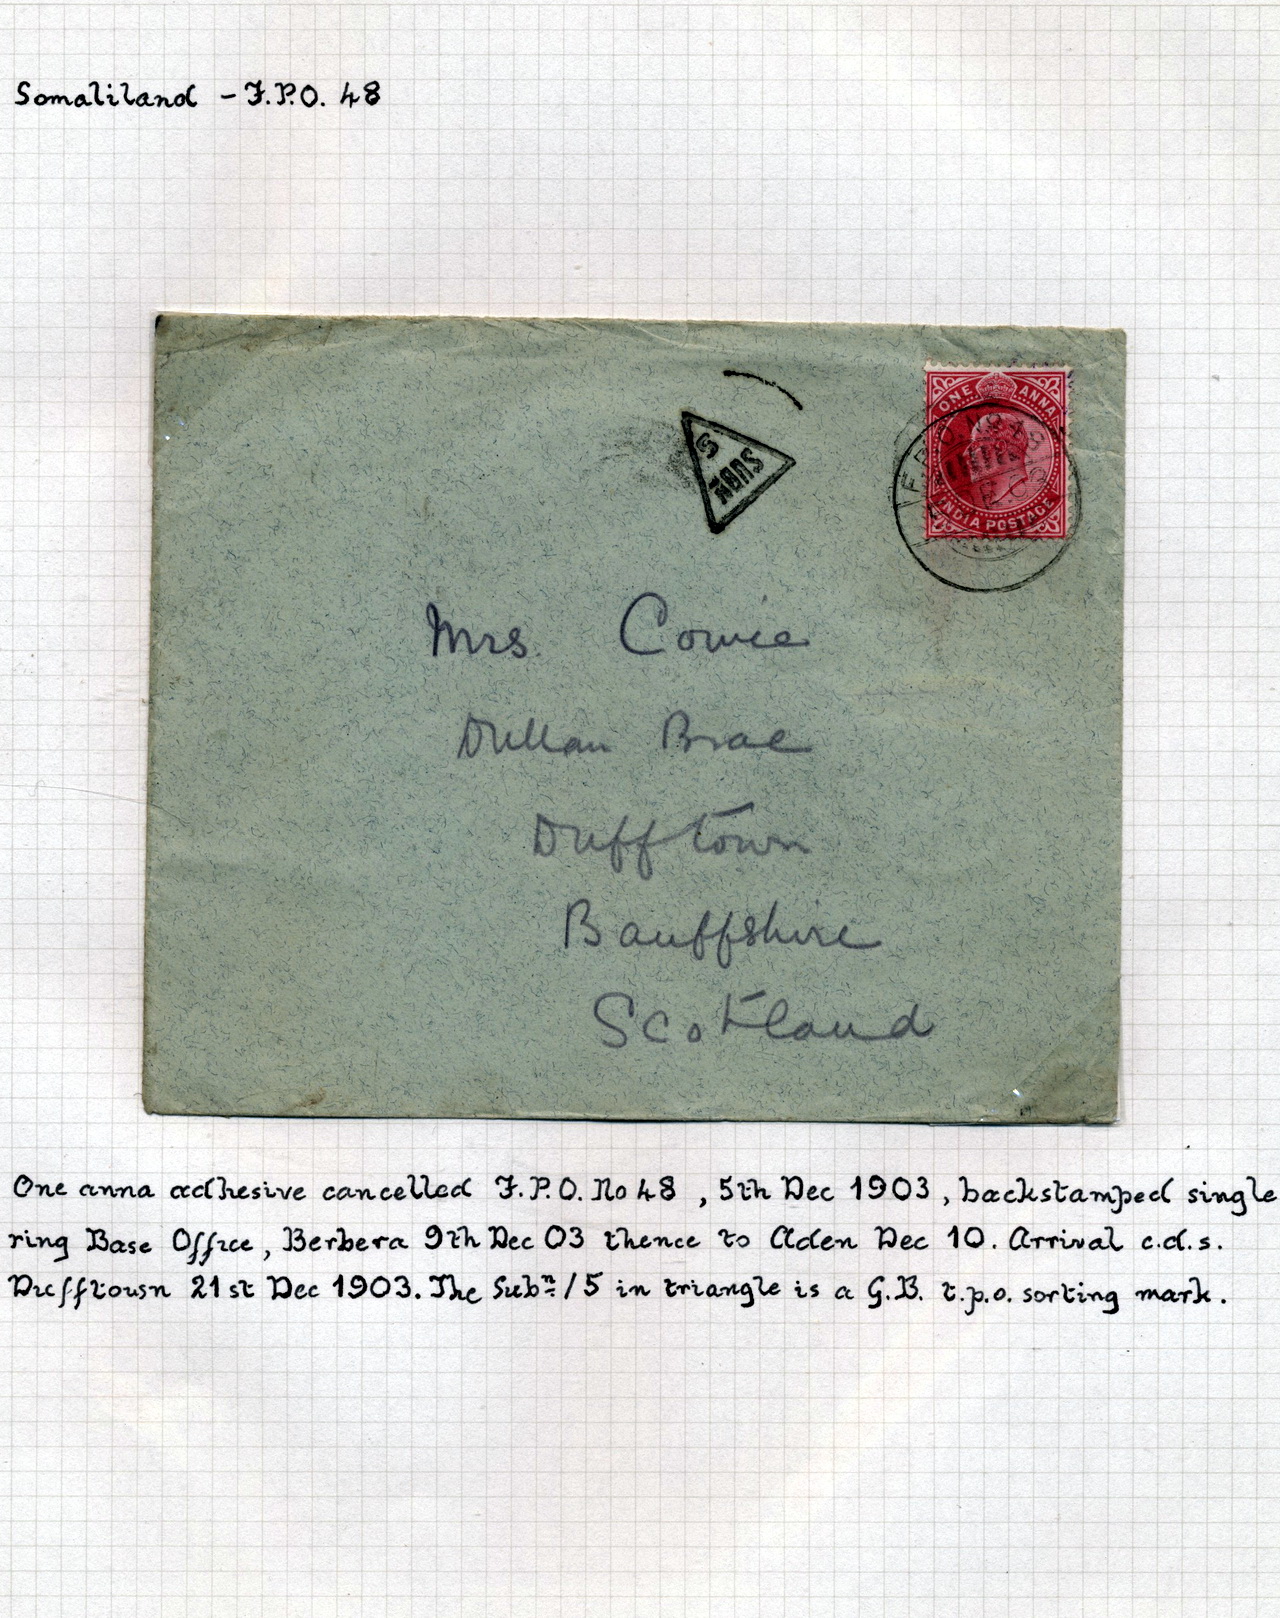 Somaliland - F.P.O. 48
ONE ANNA
F.P.O. NO. 48
INDIA POSTAGE
5
SUBN
Mrs. Cowie
Dullan Brae
Dufftown
Banffshire
Scotland
One anna adhesive cancelled F.P.O. No 48 , 5th Dec 1903 , backstamped single
ring Base Office , Berbera 9th Dec 03 thence to Aden Dec 10. Arrival c.d.s.
Dufftown 21st Dec 1903. The Subⁿ / 5 in triangle is a G.B. t.p.o. sorting mark.